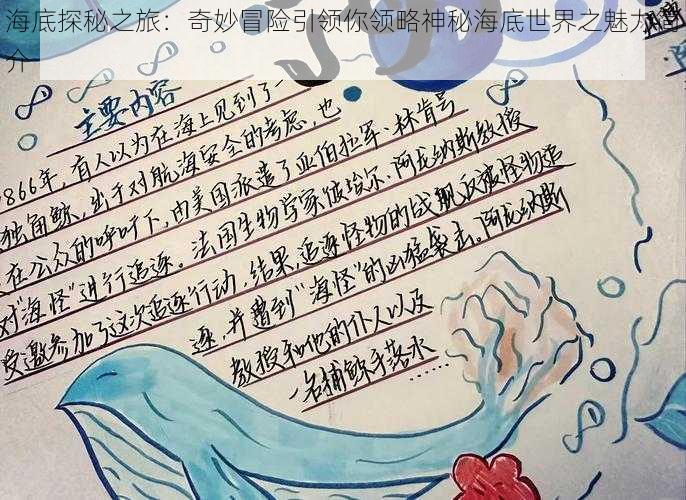 海底探秘之旅：奇妙冒险引领你领略神秘海底世界之魅力简
介
主要内容
866年，有人以为在海上见到了一
独角鲸，出于对航海安全的考虑，也
在公众的呼吁下，由美国派遣了亚伯拉罕·林肯号
对"海怪"进行追逐。法国生物学家彼埃尔·阿龙纳斯教授
受邀参加了这次追逐行动，结果，追逐怪物的战舰反被怪物追
逐，并遭到"海怪"的凶猛袭击。阿龙纳斯
教授和他的仆人以及
一名捕鲸手落水……